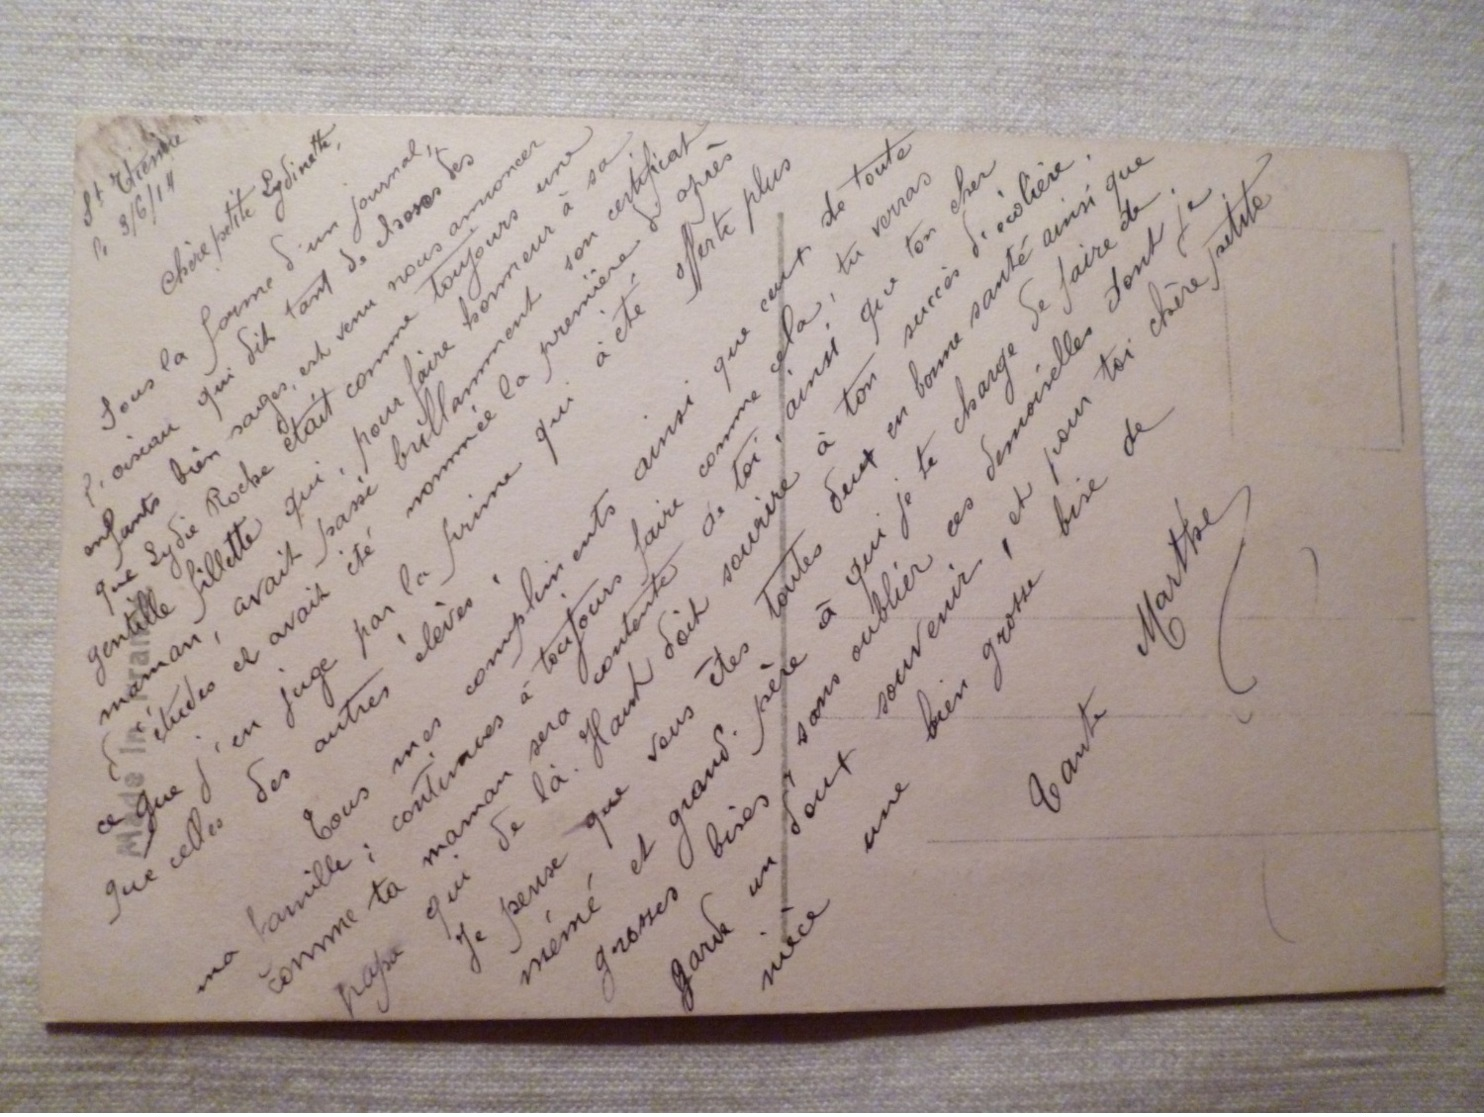 St Etienne
le 3/6/14
Chère petite Lydinette,
Sous la forme d'un journal,
l'oiseau qui dit tant de choses des
enfants bien sages, est venu nous annoncer
que Lydie Roche était comme toujours une
gentille fillette qui, pour faire honneur à sa
maman, avait passé brillamment son certificat
d'études et avait été nommée la première d'après
ce que j'en juge par la prime qui a été offerte plus
que celles des autres élèves.
Tous mes compliments ainsi que ceux de toute
ma famille; continues à toujours faire comme cela, tu verras
comme ta maman sera contente de toi, ainsi que ton cher
papa qui de là-Haut doit sourire à ton succès d'écolière.
Je pense que vous êtes toutes deux en bonne santé ainsi que
mémé et grand-père à qui je te charge de faire de
grosses bises, sans oublier ces demoiselles dont je
garde un doux souvenir, et pour toi chère petite
nièce une bien grosse bise de
Tante Marthe
Made in France